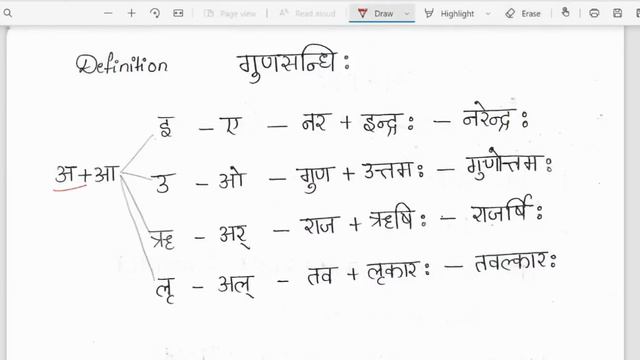 Page view
Read aloud
Draw
Highlight
Erase
Definition गुणसन्धिः
इ – ए – नर + इन्द्रः – नरेन्द्रः
अ+आ
उ – ओ – गुण + उत्तमः – गुणोत्तमः
ऋ – अर् – राज + ऋषिः – राजर्षिः
लृ – अल् – तव + लृकारः – तवल्कारः